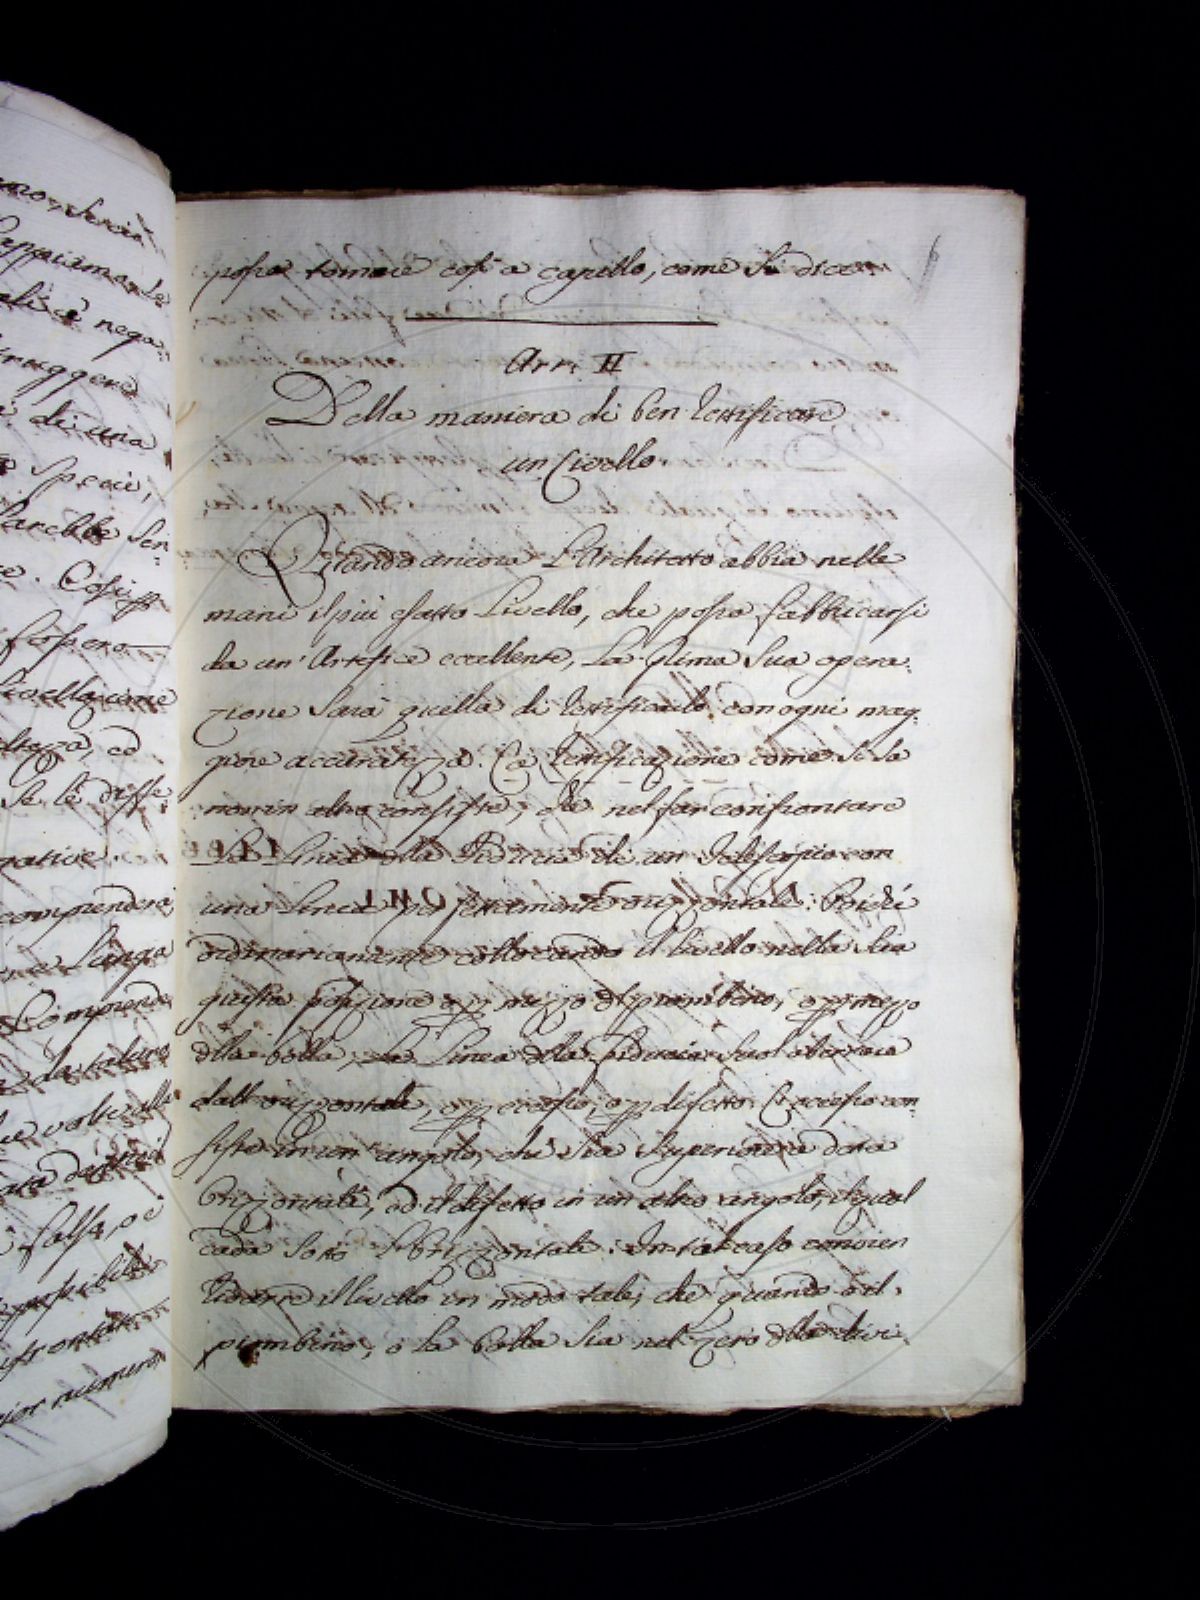 maro, Servia
possa tornare così a capello, come si dice
Art. II
Della maniera di ben rettificare
un Livello
Quando ancora l'Architetto abbia nelle
mani il più esatto Livello, che possa fabbricarsi
da un' Artefice eccellente, la prima sua opera:
zione sarà quella di rettificarlo con ogni mag:
giore accuratezza. La rettificazione come si sa
non in altro consiste, che nel far confrontare
la Linea della Fiducia di un Telescopio con
una Linea perfettamente orizontale: Poiché
ordinariamente collocando il livello nella sua
giusta posizione o per mezzo del piombino, o per mezzo
della bolla, la Linea della fiducia suol aberrare
dall' orizzontale, o per eccesso, o per difetto. L'eccesso con:
siste in un angolo, che sia superiore a detta
Orizzontale, ed il difetto in un altro angolo, il qual
cada sotto l'Orizzontale. In tal caso convien
ridurre il livello in modo tale, che quando o il
piombino, o la bolla sia nel Zero della divi
negati:
di una
Specie,
sarebbe sen
fossero
Livellazione
altezza, ed
se le diffe
comprenderà
Linea lunga
Comprende
da taluno
volte alle
falsa, o è
impossibile
numero